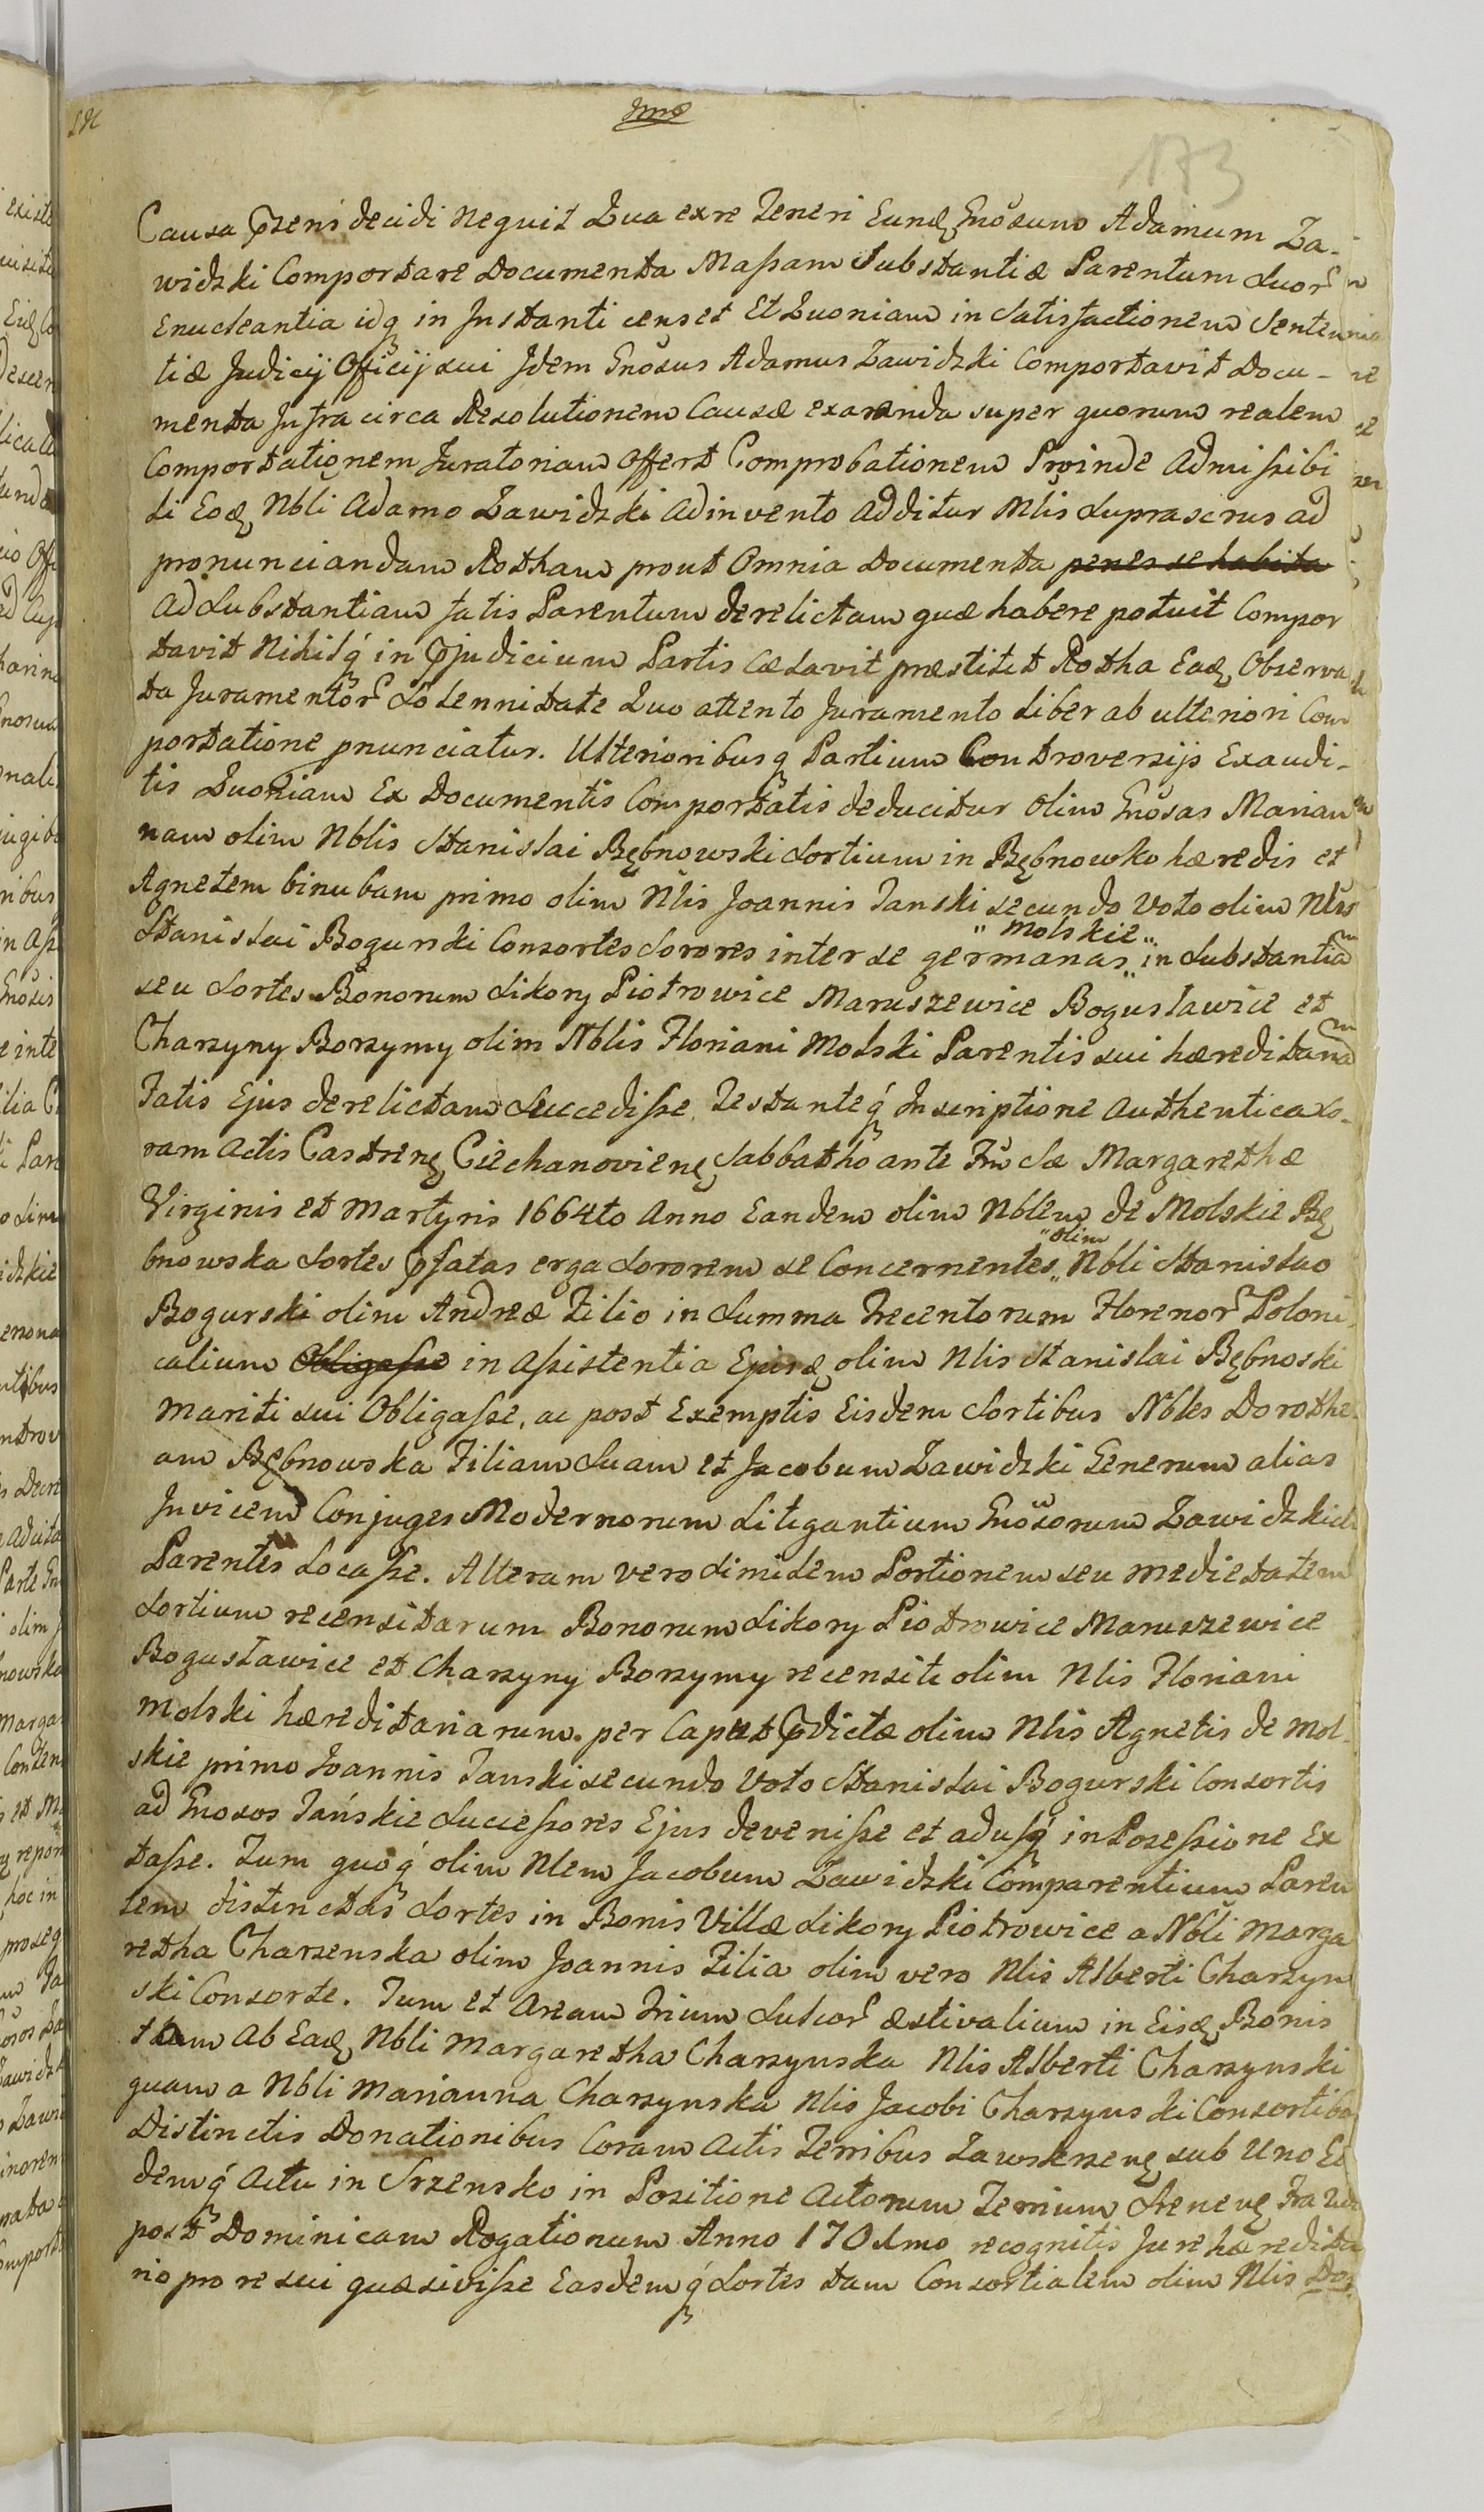 173
Causa pͬsens decidi nequit Qua ex re Teneri Eundͤ Gnōsum Adamum Za-
widzki Comportare Documenta Massam Substantiæ Parentum Suorͬ
Enucleantia idq́ in Instanti censet Et Quoniam in Satisfactionem Senten
tiæ Judicij Officij sui Idem Gnōsus Adamus Zawidzki Comportavit Docu-
menta Infra circa Resolutionem Causæ exaranda super quorum realem
Comportationem Juratoriam Offert Comprobationem Proinde Admissibi
li Eodͤ Nbli Adamo Zawidzki Adinvento Additur Mlis Suprascrus ad
pronunciandam Rotham prout Omnia Documenta penes se habita
Ad Substantiam fatis Parentum derelictam quæ habere potuit Compor
tavit Nihilq́ in pͬjudicium Partis Cælavit præstitit Rotha Eadͤ Observa
ta Juramentorͬ Solennitate Quo attento Juramento liber ab ulteriori Com
portatione pnunciatur. Ulterioribusq́ Partium Controversijs Exaudi-
tis Quoniam Ex Documentis Comportatis deducitur Olim Gnōsas Marian
nam olim Nblis Stanislai Bębnowski Sortium in Bębnowko hæredis et
Agnetem binubam primo olim Nlis Joannis Tanski secundo Voto olim Nlis
Stanislai Bogurski Consortes Sorores inter se germanas "Molskie" in Substantiam
seu Sortes Bonorum Sikory Piotrowice Maruszewice Bogusławice et
Charzyny Borzymy olim Nblis Floriani Molski Parentis sui hæreditariam
Fatis Ejus derelictam Successisse Testanteq́ Inscriptione Authentica Co-
ram Actis Castrenͤ Ciechanovienͤ Sabbatho ante Fm Sæ Margarethæ
Virginis et Martyris 1664to Anno Eandem olim Nblem de Molskie Bę
bnowska Sortes pͬfatas erga Sororem se Concernentes "olim" Nbli Stanislao
Bogurski olim Andreæ Filio in Summa Trecentorum Florenorͬ Poloni
calium Obligasse in Assistentia Ejusdͤ olim Nlis Stanislai Bębnoski
Mariti sui Obligasse, ac post Exemptis Eisdem Sortibus Nbles Dorothe
am Bębnowska Filiam Suam et Jacobum Zawidzki Generum alias
Invicem Conjuges Modernorum Litigantium Gnōsorum Zawidzkich
Parentes Locasse. Alteram vero Similem Portionem seu Medietatem
Sortium recensitarum Bonorum Sikory Piotrowice Maruszewice
Bogusławice et Charzyny Borzymy recensiti olim Nlis Floriani
Molski hæreditariarum. per Caput pͬdictæ olim Nlis Agnetis de Mol-
skie primo Joannis Tanski secundo Voto Stanislai Bogurski Consortis
ad Gnosos Tańskie Successores Ejus devenisse et adusq́ in Possessione Ex
tasse. Tum quoq́ olim Nlem Jacobum Zawidzki Comparentium Paren
tem distinctas Sortes in Bonis Villæ Sikory Piotrowice a Nbli Marga
retha Charzenska olim Joannis Filia olim vero Nlis Alberti Charzyn
ski Consorte. Tum et Aream Trium Sulcorͬ æstivalium in Eisdͤ Bonis
tam Ab Eadͤ Nbli Margaretha Charzynska Nlis Alberti Charzynski
quam a Nbli Marianna Charzynska Nlis Jacobi Charzynski Consortibus
Distinctis Donationibus Coram Actis Terribus Zawskrzenͤ sub Uno Eo
demq́ Actu in Srzensko in Positione Actorum Terrium
post Dominicam Rogationum Anno recognitis Jure hæredita
rio pro re sui quæsivisse Easdemq́ Sortes tam Consortialem olim Nlis Do